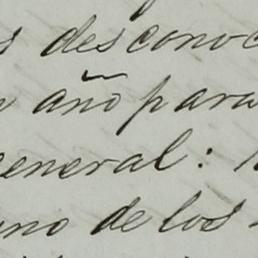 desconoc
año para
eneral:
de los